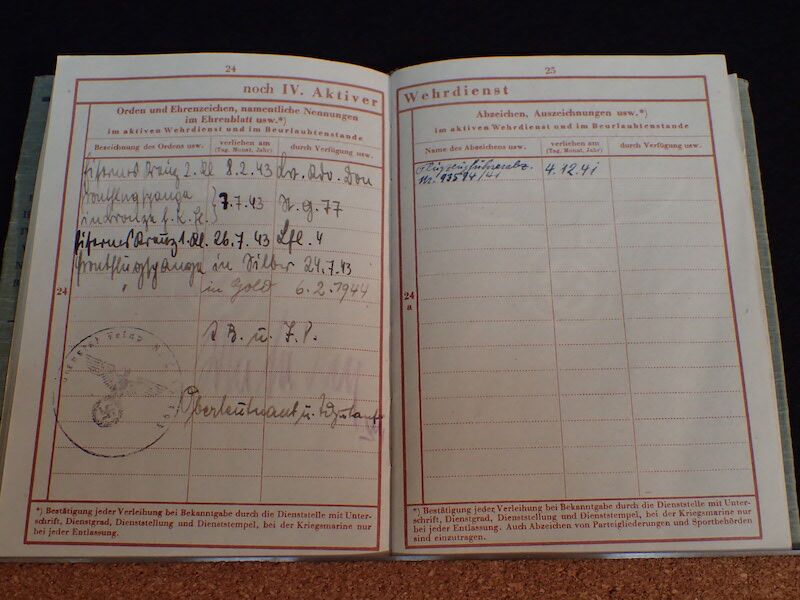 24
noch IV. Aktiver
Orden und Ehrenzeichen, namentliche Nennungen
im Ehrenblatt usw.*)
im aktiven Wehrdienst und im Beurlaubtenstande
Bezeichnung des Ordens usw.
verliehen am
(Tag, Monat, Jahr)
durch Verfügung usw.
Eisernes Kreuz 2. Kl 8.2.43 Lw. Kdo. Don
Frontflugspange
in Bronze f. K. fl. } 7.7.43 St. G. 77
Eisernes Kreuz 1. Kl. 26.7.43 Lfl. 4
Frontflugspange in Silber 24.7.43
" in Gold 6.2.1944
24
B. u. J. P.
Oberleutnant u.
*) Bestätigung jeder Verleihung bei Bekanntgabe durch die Dienststelle mit Unter-
schrift, Dienstgrad, Dienststellung und Dienststempel, bei der Kriegsmarine nur
bei jeder Entlassung.
25
Wehrdienst
Abzeichen, Auszeichnungen usw.*)
im aktiven Wehrdienst und im Beurlaubtenstande
Name des Abzeichens usw.
verliehen am
(Tag, Monat, Jahr)
durch Verfügung usw.
Flugzeugführerabz. 4.12.41
Nr. 93594/41
24
a
*) Bestätigung jeder Verleihung bei Bekanntgabe durch die Dienststelle mit Unter-
schrift, Dienstgrad, Dienststellung und Dienststempel, bei der Kriegsmarine nur
bei jeder Entlassung. Auch Abzeichen von Parteigliederungen und Sportbehörden
sind einzutragen.